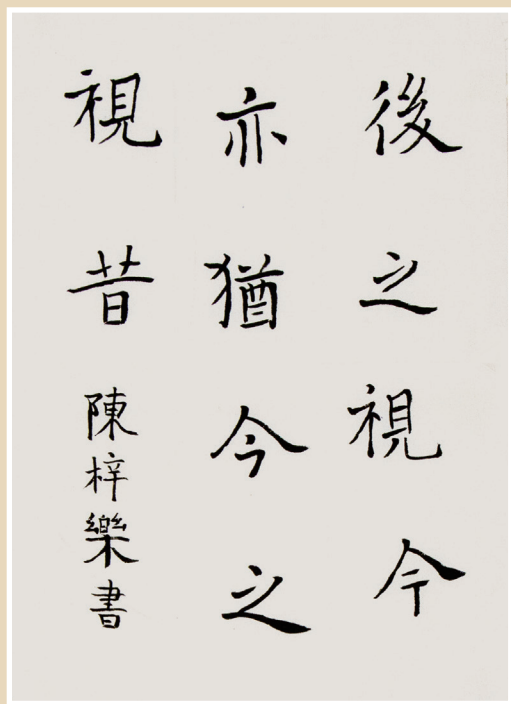 後之視今
亦猶今之
視昔
陳梓樂書